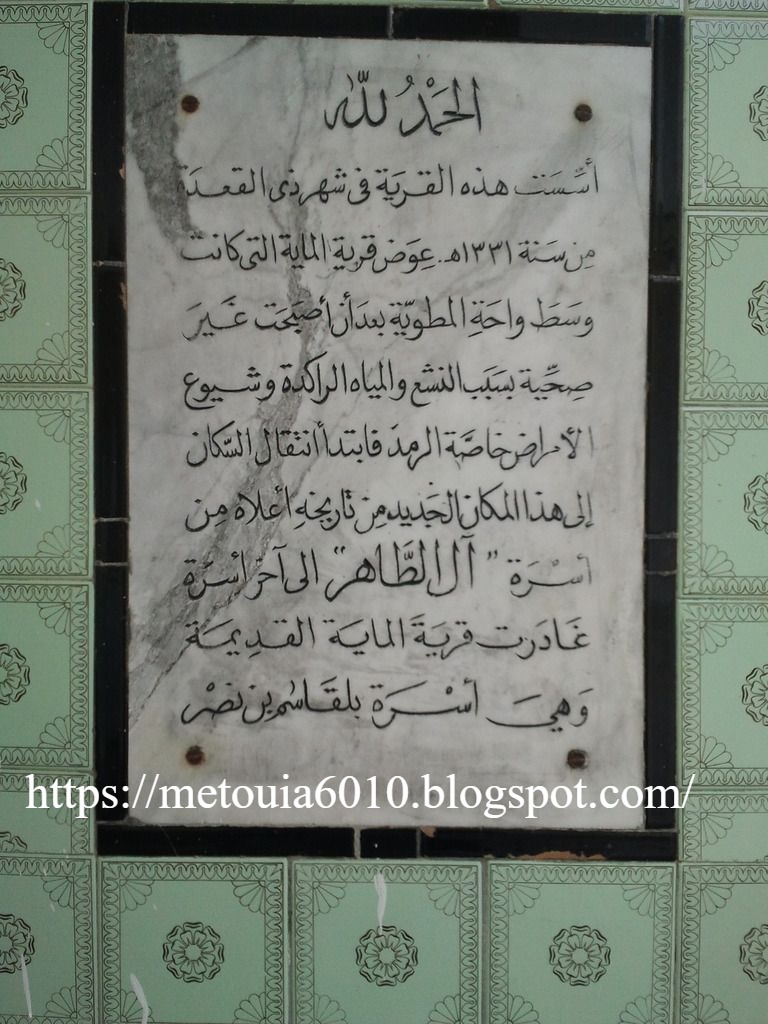 الحَمْدُ لله
أسِّسَت هذه القريَة فى شهر ذى القعدَة
مِن سَنة ١٣٣١هـ. عِوَض قرية الماية التى كانت
وسَطَ واحَةِ المطويّة بعدَ أن أصبَحَت غَيرَ
صِحِّية بسَبَب النشع والمياه الراكدة وشيوع
الأمراض خاصَّة الرمدَ فابتدأ انتقال السّكان
إلى هذا المكان الجَديد مِن تاريخهِ أعلاه مِن
أسْرَة " آل الطَّاهر " الى آخر أسرَة
غَادَرت قريَةَ المايَة القدِيمَة
وَهيَ أسْرَة بلقَاسم بن نصْر
https://metouia6010.blogspot.com/